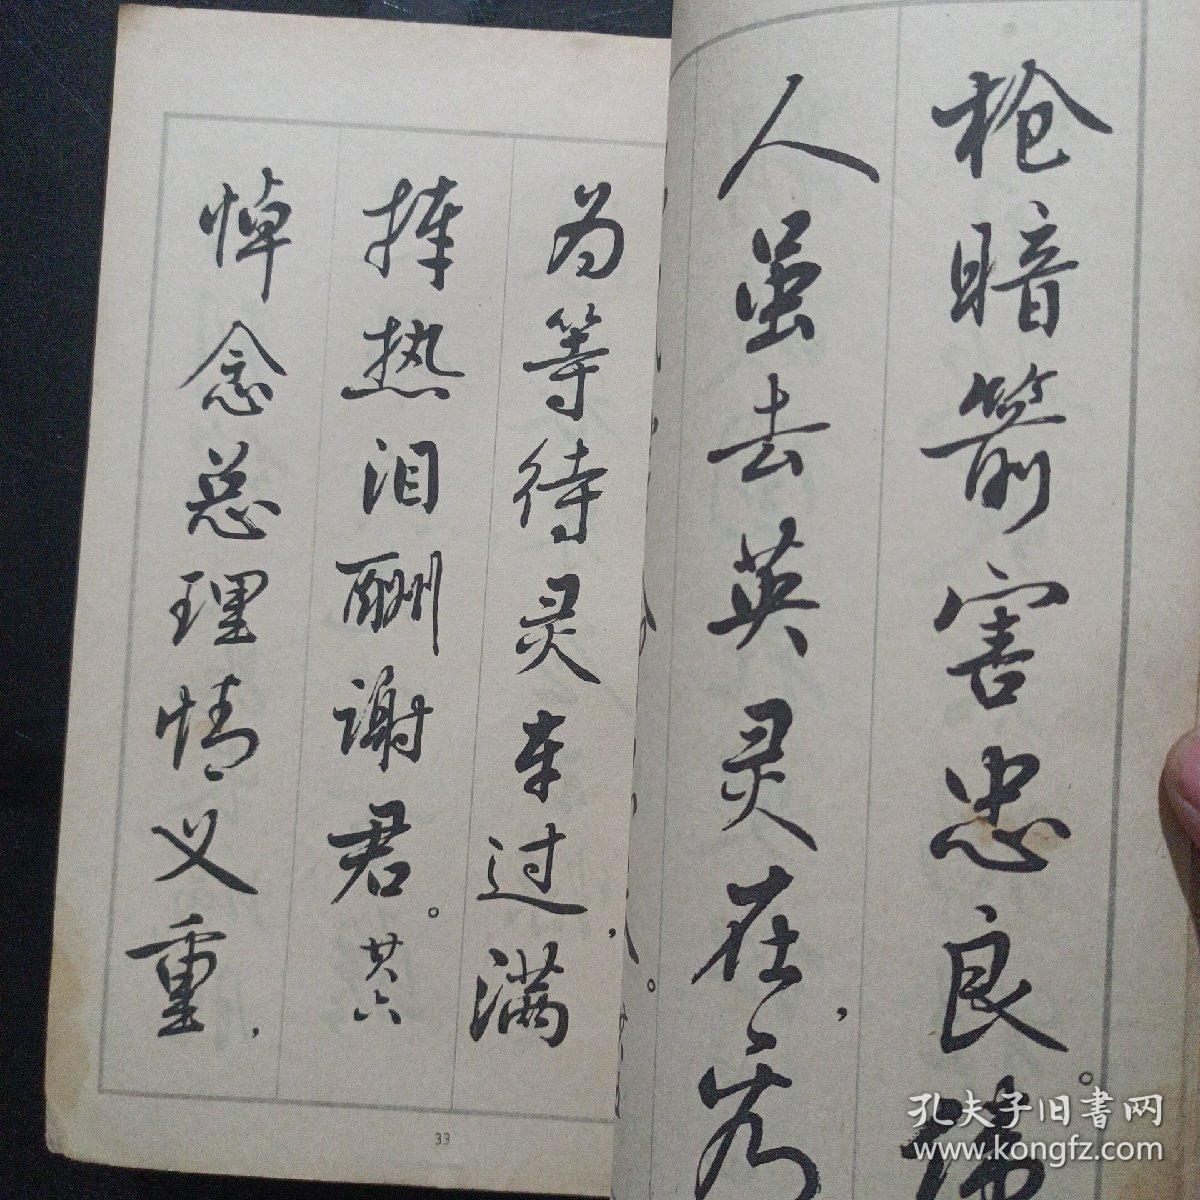 枪暗箭害忠良。伟
人虽去英灵在,若
为等待灵车过,满
捧热泪酬谢君。廿六
悼念总理情义重,
33
孔夫子旧书网
www.kongfz.com